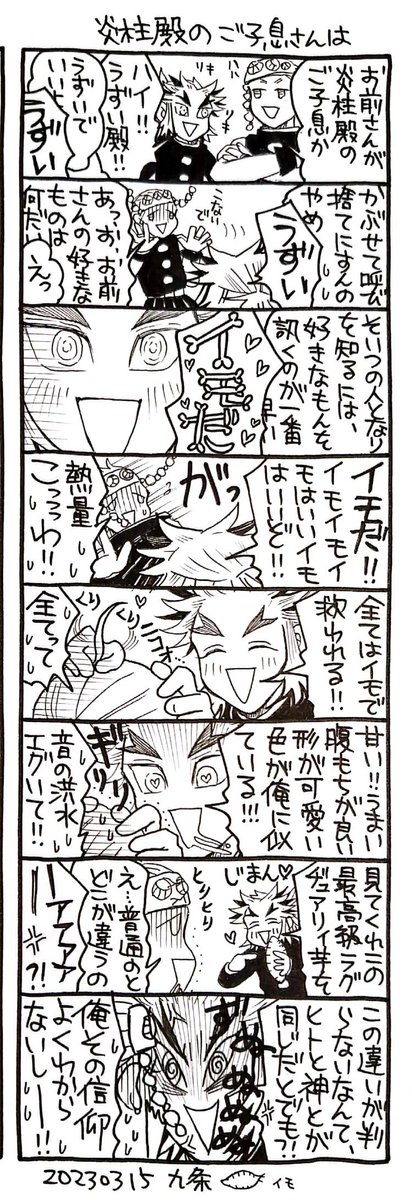 炎柱殿のご子息さんは
お前さんが
炎柱殿の
ご子息か
りキ
りキ
ハイ!!
うずい
殿!!
うずいで
いいと
うずい
かぶせて呼び
捨てにすんの
やめ
うずい
こないで
あっ、お、お前
さんの好きな
ものは
何だ
えっ
そいつの人となり
を知るには、
好きなもんを
訊くのが一番
早い
イモだ
イモだ!!
イモイモイイ
モはいいイモ
はいいど!!
がっ
熱量
こっっっわ!!
全てはイモで
救われる!!
ぐり
ぐり
全てって
甘い!!うまい
腹もちが良い
形が可愛い
色が俺に似
ている!!!
ギリリリ
音の洪水
エグいて!!
見てくれこの
最高級ラグ
ヂュアリィ芋を
じまん
とりとり
え…普通のと
どこが違うの
ーアァァァ?!
この違いが判
らないなんて、
ヒトと神とが
同じだとでも?!
ずぬぬぬぬぬぬ
俺その信仰
よくわから
ないしーー!!
20230315 九条 イモ